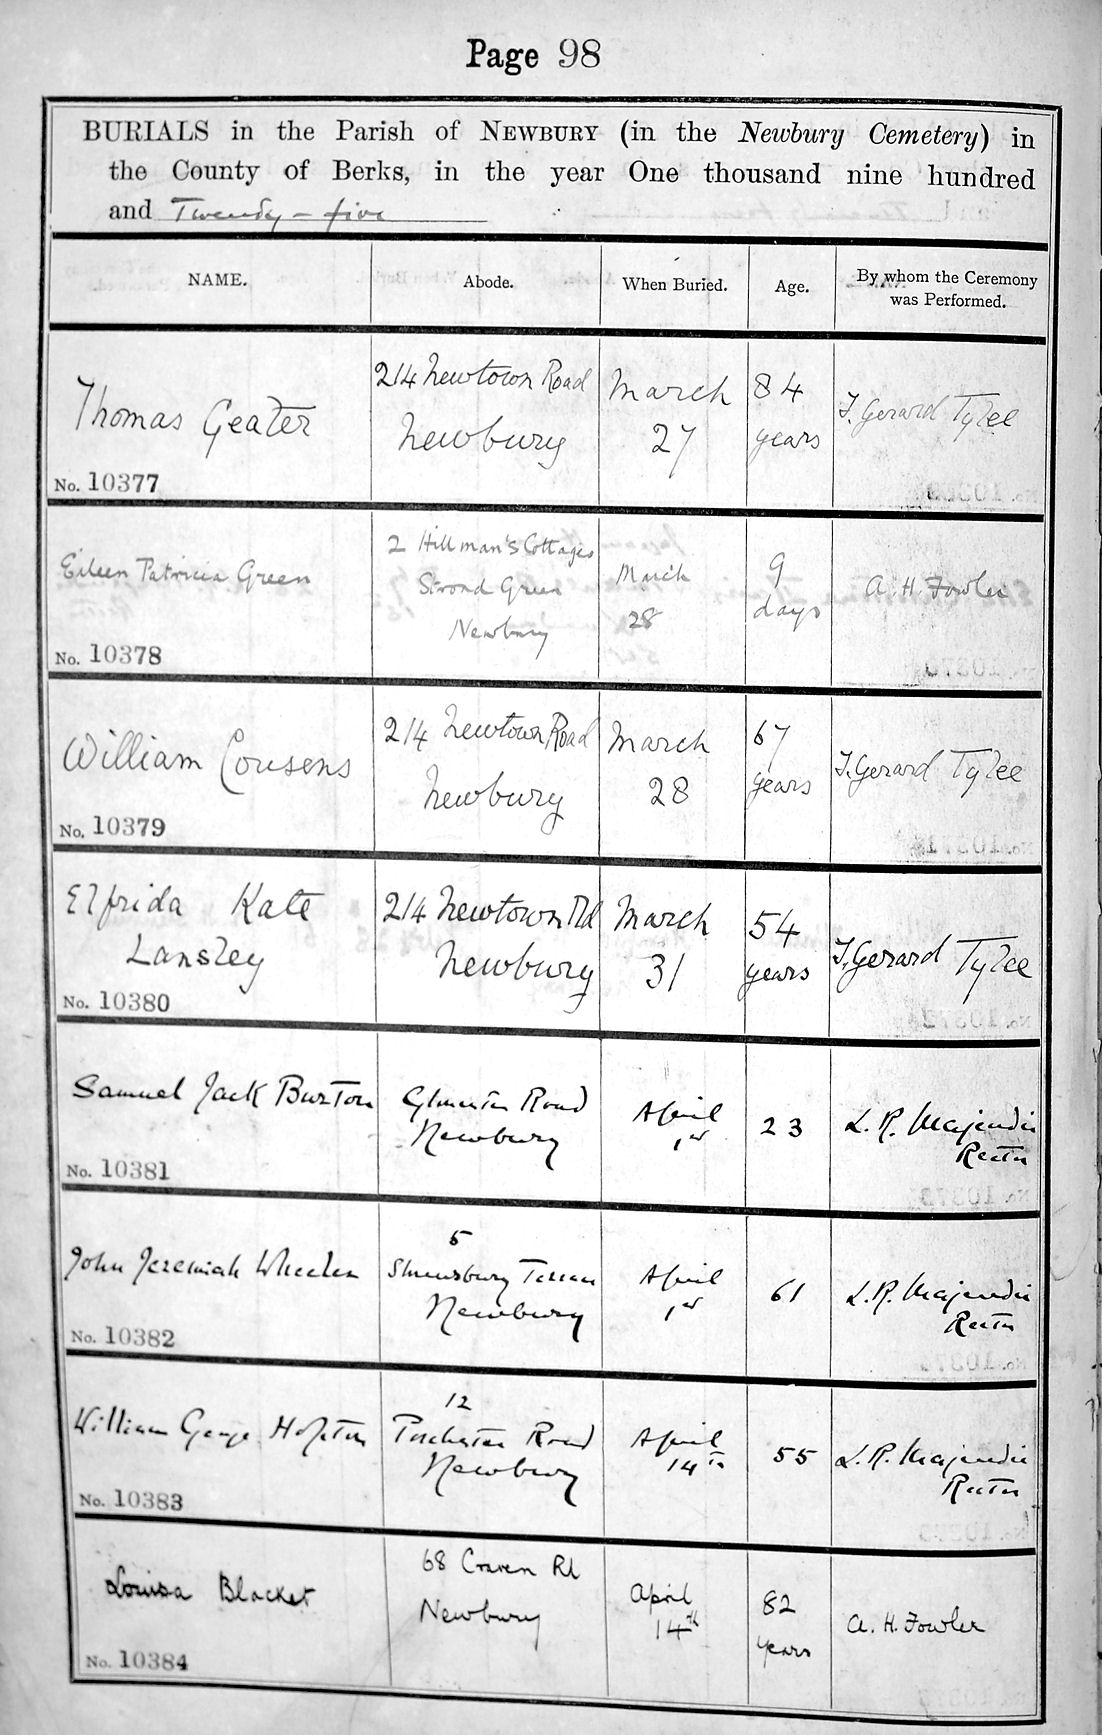 Page 98
BURIALS in the Parish of NEWBURY (in the Newbury Cemetery) in
the County of Berks, in the year One thousand nine hundred
and Twenty-five
NAME. Abode. When Buried. Age. By whom the Ceremony
was Performed.
Thomas Geater
No. 10377
214 Newtown Road
Newbury
March
27
84
years
F. Gerard Tylee
Eileen Patricia Green
No. 10378
2 Hillman's Cottages
Stroud Green
Newbury
March
28
9
days
A. H. Fowler
William Cousens
No. 10379
214 Newtown Road
Newbury
March
28
67
years
F. Gerard Tylee
Elfrida Kate
Lansley
No. 10380
214 Newtown Rd
Newbury
March
31
54
years
F. Gerard Tylee
Samuel Jack Burton
No. 10381
Gloucester Road
Newbury
April
1st
23
L. R. Majendie
Rector
John Jeremiah Wheeler
No. 10382
5
Shrewsbury Terrace
Newbury
April
1st
61
L. R. Majendie
Rector
William George Hopton
No. 10383
12
Porchester Road
Newbury
April
14th
55
L. R. Majendie
Rector
Louisa Blacket
No. 10384
68 Craven Rd
Newbury
April
14th
82
years
A. H. Fowler